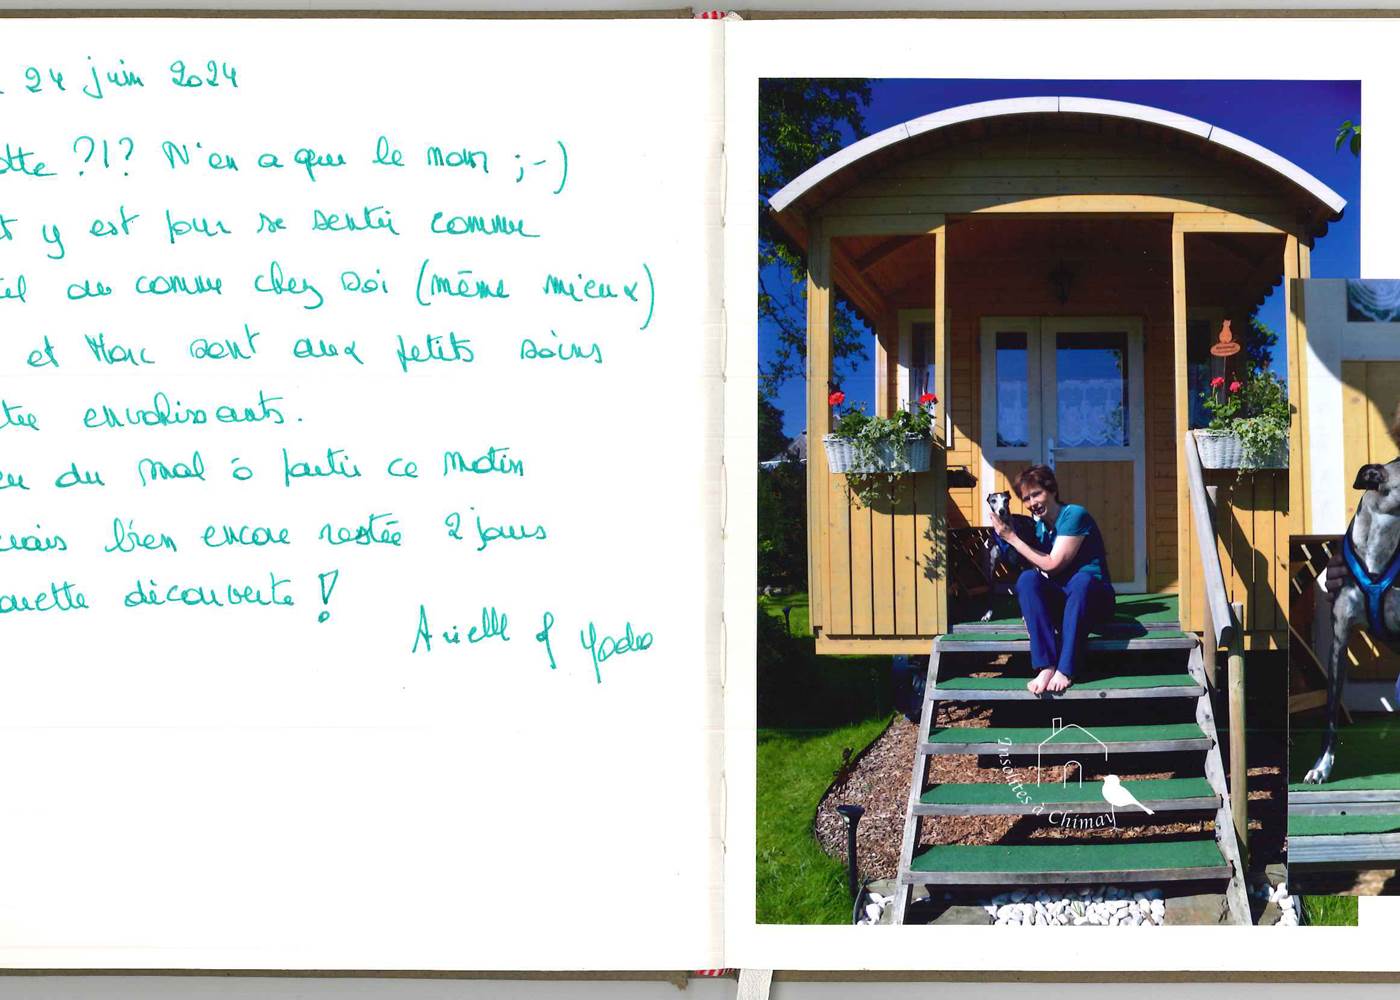 24 juin 2024
otte ?!? N'en a que le nom ;-)
t y est pour se sentir comme
el ou comme chez soi (même mieux)
et Marc sont aux petits soins
tre envahissants.
eu du mal à partir ce matin
rais bien encore restée 2 jours
ouette découverte !
Arielle & Yoda
Insolites à Chimay